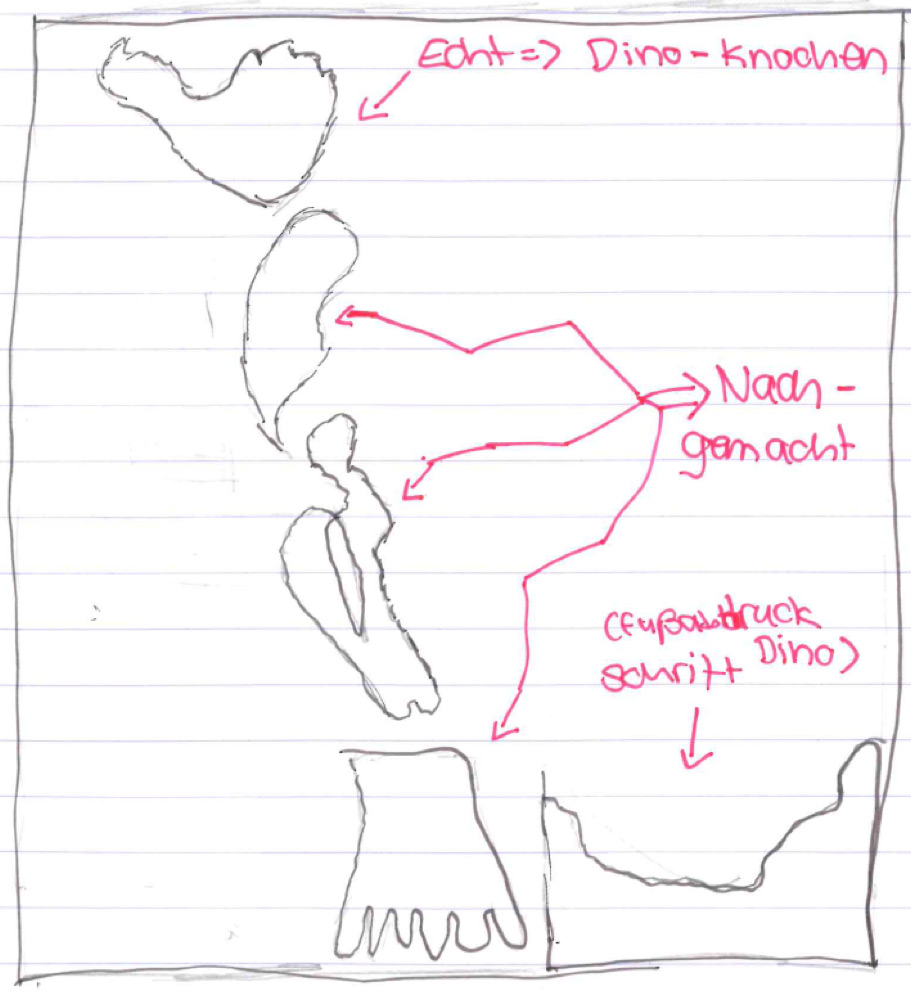 Echt => Dino-Knochen
Nach-
gemacht
(Fußabdruck
schritt Dino)